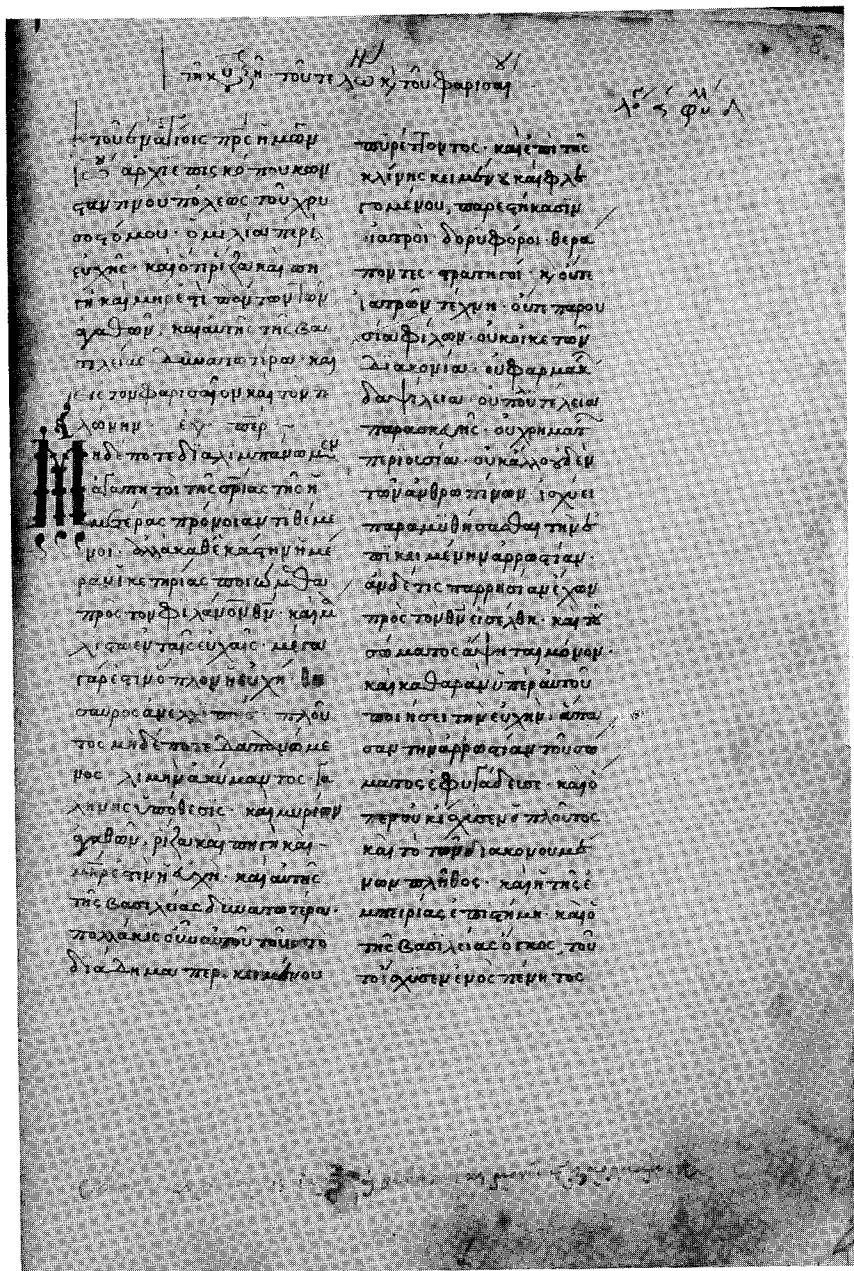 τοῦ ἐν ἁγίοις πρς ἡμῶν
ἀρχιεπισκόπου κων
σταντινουπόλεως τοῦ χρυ
σοστόμου· ὁμιλία περὶ
εὐχῆς· καὶ ὅτι ῥίζα καὶ πη
γὴ καὶ μήρ ἐστὶ πάντων τῶν
ἀγαθῶν, καὶ αὐτῆς τῆς βα
σιλείας δυνατωτέρα· καὶ
εἰς τὸν φαρισαῖον καὶ τὸν τε
λώνην
Μηδέποτε διαλιμπάνωμεν
ἀγαπητοὶ τῆς σρίας τῆς ἡ
μετέρας πρόνοιαν τιθέμε
νοι· ἀλλὰ καθεκάστην ἡμέ
ραν ἱκετηρίας ποιώμεθα
πρὸς τὸν φιλανον θν· καὶ μὴ
ἐν ταῖς εὐχαῖς· μέγα
γάρ ἐστιν ὅπλον ἡ εὐχή· θη
σαυρὸς ἀνελλιπής· πλοῦ
τος μηδέποτε δαπανώμε
νος λιμὴν ἀκύμαντος· γα
λήνης ὑπόθεσις· καὶ μυρίων
ἀγαθῶν, ῥίζα καὶ πηγὴ καὶ
μήρ ἐστὶν ἡ εὐχή· καὶ αὐτῆς
τῆς βασιλείας δυνατωτέρα·
πολλάκις οὖν αὐτοῦ τοῦ τὸ
διάδημα περικειμένου
πυρέττοντος· καὶ ἐπὶ τῆς
κλίνης κειμένου καὶ φλε
γομένου, παρεστήκασιν
ἰατροὶ δορυφόροι· θερά
ποντες· στρατηγοί· κ οὔτε
ἰατρῶν τέχνη· οὔτε παρου
σία φίλων· οὐκ οἰκετῶν
διακονία· οὐ φαρμάκ
δαψίλεια· οὐ πολυτέλεια
παρασκευῆς· οὐ χρημάτ
περιουσία· οὐκ ἄλλο οὐδὲν
τῶν ἀνθρωπίνων ἰσχύει
παραμυθήσασθαι τὴν ἐ
πικειμένην ἀρρωστίαν·
ἂν δέ τις παρρησίαν ἔχων
πρὸς τὸν θν εἰσέλθη· καὶ τοῦ
σώματος ἅψηται μόνον·
καὶ καθαρὰν ὑπὲρ αὐτοῦ
ποιήσει τὴν εὐχήν· ἅπα
σαν τὴν ἀρρωστίαν τοῦ σώ
ματος ἐφυγάδευσε· καὶ ὁ
περ οὐκ ἴσχυσεν ὁ πλοῦτος
καὶ τὸ τῶν διακονουμέ
νων πλῆθος· καὶ ἡ τῆς ἐ
μπειρίας ἐπιστήμη· καὶ ὁ
τῆς βασιλείας ὄγκος, τοῦ
το ἴσχυσεν ἑνὸς πένητος